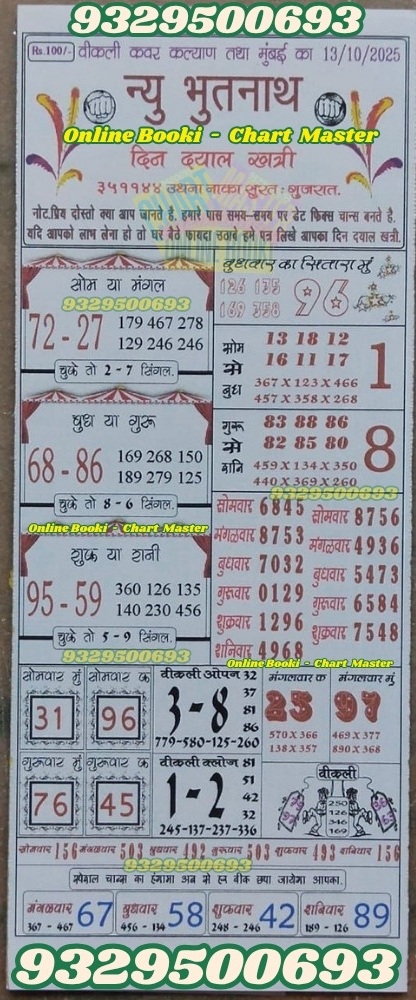 9329500693
Rs.100/- वीकली कवर कल्याण तथा मुंबई का 13/10/2025
न्यु भुतनाथ
Online Booki - Chart Master
दिन दयाल खत्री
३५११४४ उधना नाका सुरत: गुजरात.
नोट.प्रिय दोस्तो क्या आप जानते है. हमारे पास समय-समय पर डेट फिक्स चान्स बनते है.
यदि आपको लाभ लेना हो तो घर बैठे फायदा उठावे हमे पत्र लिखे आपका दिन दयाल खत्री.
सोम या मंगल
9329500693
72-27
179 467 278
129 246 246
चुके तो 2-7 सिंगल.
बुधवार का सितारा मुं
126 135
169 358
96
सोम से बुध
13 18 12
16 11 17
367X123X466
457X358X268
1
बुध या गुरू
68-86
169 268 150
189 279 125
चुके तो 8-6 सिंगल.
गुरू से शनि
83 88 86
82 85 80
459X134X350
440X369X260
8
9329500693
Online Booki - Chart Master
शुक्र या शनी
95-59
360 126 135
140 230 456
चुके तो 5-9 सिंगल.
9329500693
सोमवार 6845
मंगळवार 8753
बुधवार 7032
गुरूवार 0129
शुक्रवार 1296
शनिवार 4968
सोमवार 8756
मंगळवार 4936
बुधवार 5473
गुरूवार 6584
शुक्रवार 7548
Online Booki - Chart Master
सोमवार मुं
31
सोमवार क
96
वीकली ओपन 32
3-8
37
81
86
779-580-125-260
मंगलवार क
25
570X366
138X357
मंगलवार मुं
97
469X377
890X368
गुरूवार मुं
76
गुरूवार क
45
वीकली क्लोज 81
1-2
51
42
32
245-137-237-336
वीकली
250
126
346
169
सोमवार 156 मंगळवार 503 बुधवार 492 गुरूवार 503 शुक्रवार 493 शनीवार 156
9329500693
स्पेशल चान्स का हंगामा अब से हर वीक छपा जायेगा आपका.
मंगळवार 67
367 - 467
बुधवार 58
456 - 134
शुक्रवार 42
248 - 246
शनिवार 89
189 - 126
9329500693